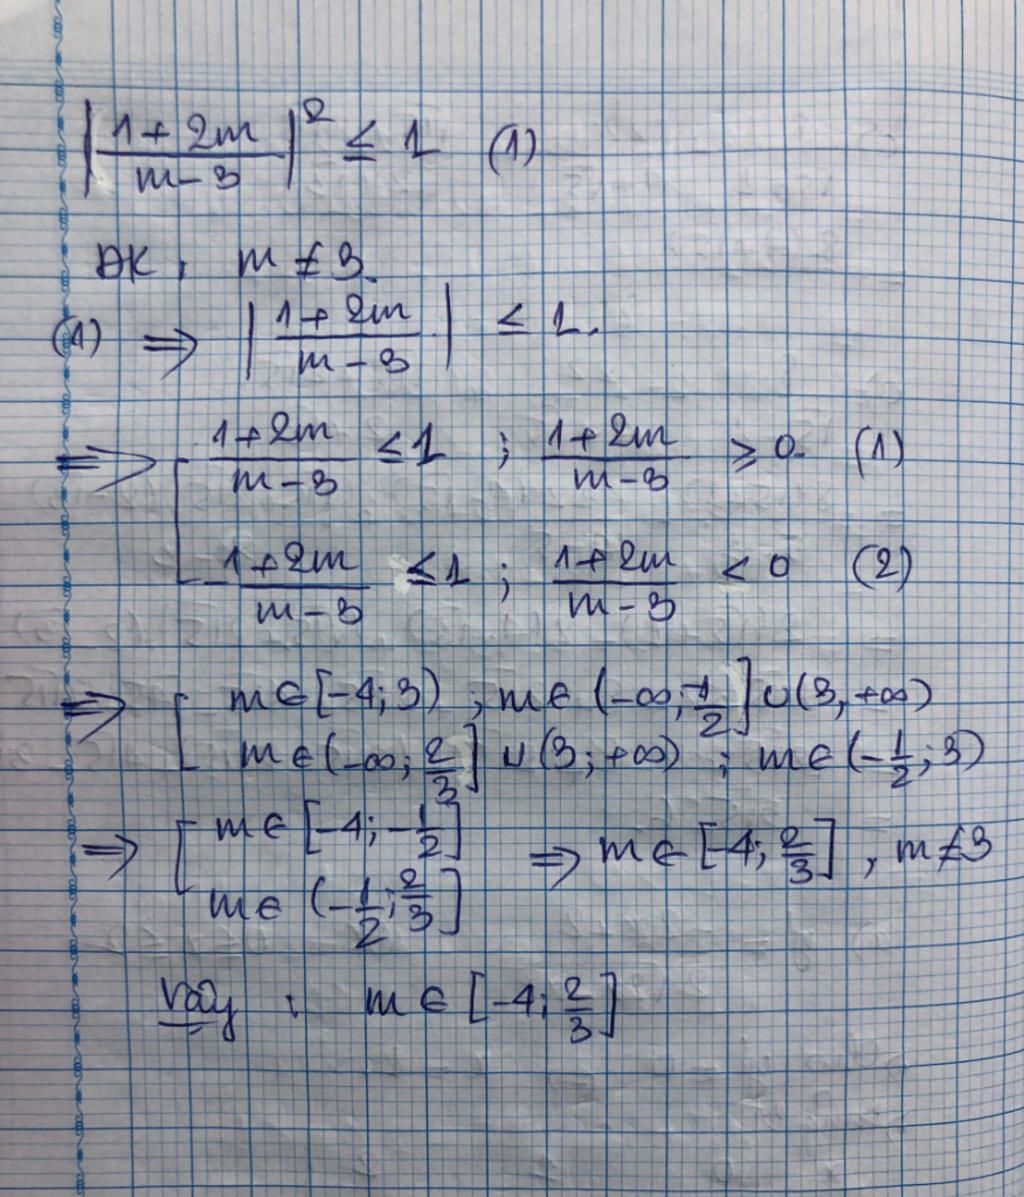 |(1+2m)/(m-3)|² ≤ 1 (1)
ĐK : m ≠ 3.
(1) ⇒ |(1+2m)/(m-3)| ≤ 1.
⇒ [ (1+2m)/(m-3) ≤ 1 ; (1+2m)/(m-3) ≥ 0. (1)
-(1+2m)/(m-3) ≤ 1 ; (1+2m)/(m-3) < 0 (2)
⇒ [ m ∈ [-4; 3) ; m ∈ (-∞; -1/2] ∪ (3, +∞)
m ∈ (-∞; 2/3] ∪ (3; +∞) ; m ∈ (-1/2; 3)
⇒ [ m ∈ [-4; -1/2] ⇒ m ∈ [-4; 2/3] , m ≠ 3
m ∈ (-1/2; 2/3]
Vậy : m ∈ [-4; 2/3]